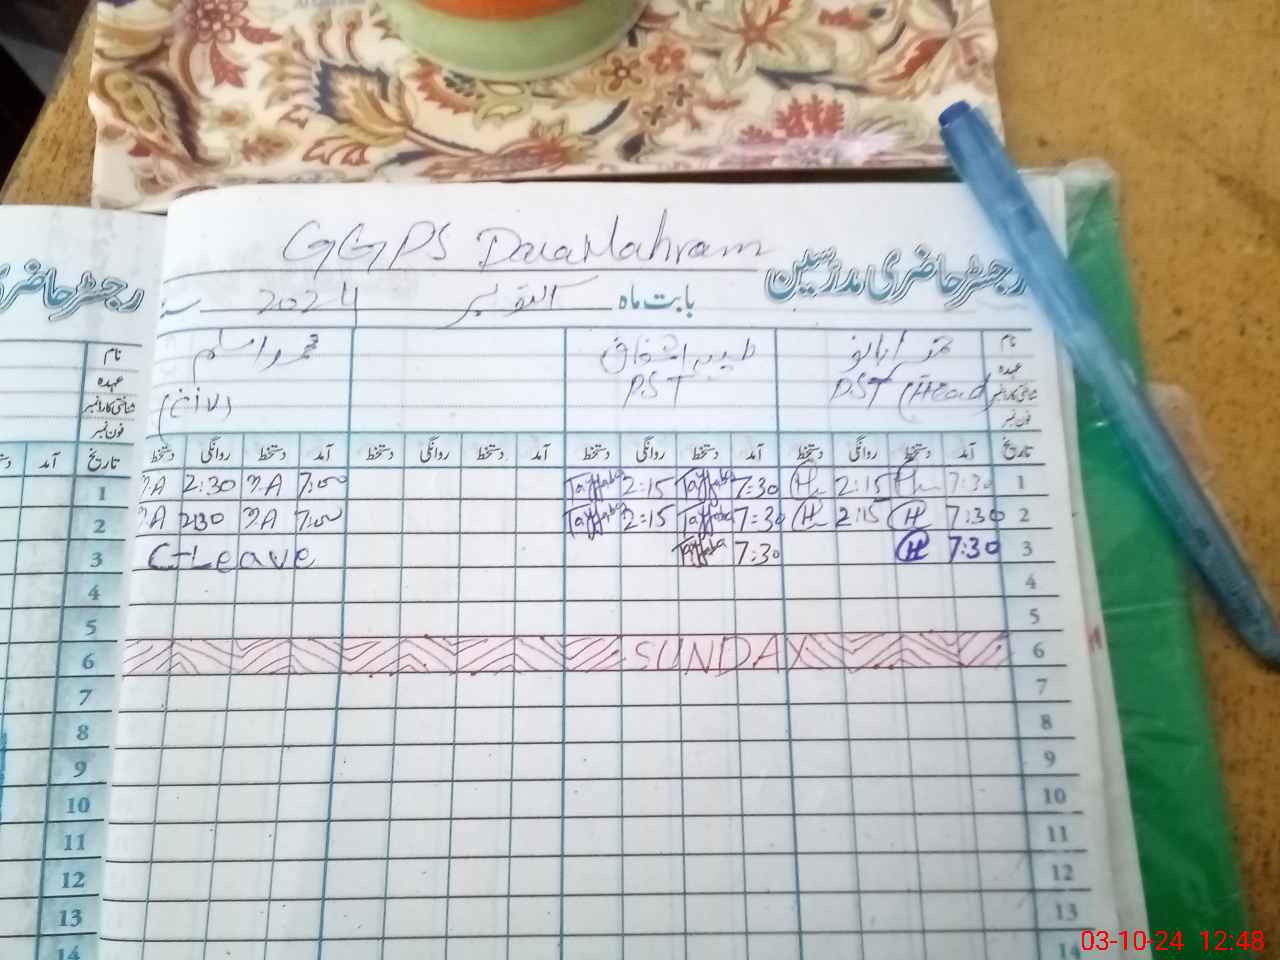 GGPS DaraMahram
رجسٹر حاضری مدرسین
رجسٹر حاضری
بابت ماہ اکتوبر سنہ 2024
نام طیبہ اشفاق محمد اسلم
عہدہ PST (Head) PST
شناختی کارڈ نمبر
فون نمبر
تاریخ آمد دستخط روانگی دستخط آمد دستخط روانگی دستخط آمد دستخط روانگی دستخط آمد دستخط روانگی دستخط تاریخ آمد
1 7:30 H 2:15 H 7:30 Tayyaba 2:15 Tayyaba 7:00 M.A 2:30 M.A 1
2 7:30 H 2:15 H 7:30 Tayyaba 2:15 Tayyaba 7:00 M.A 2:30 M.A 2
3 7:30 H 7:30 Tayyaba C-Leave 3
4 4
5 5
6 SUNDAY 6
7 7
8 8
9 9
10 10
11 11
12 12
13 13
14 14
03-10-24 12:48